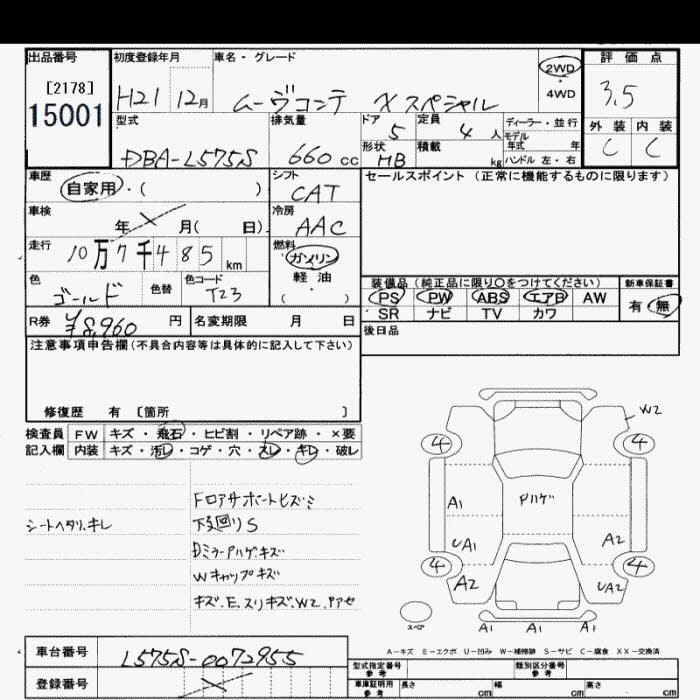 出品番号 初度登録年月 車名・グレード 2WD 評価点
[2178] ・
15001 H21 12月 ムーヴコンテ Xスペシャル 4WD 3.5
型式 排気量 ドア 定員 ディーラー・並行 外装 内装
DBA-L575S 660cc 5 4人 モデル年式 年 C C
形状 積載 kg ハンドル 左・右
HB
車歴 シフト セールスポイント (正常に機能するものに限ります)
自家用・( ) CAT
車検 冷房
年 月( 日) AAC
走行 燃料
10万7千485km ガソリン
軽油
( )
色 色替 色コード 装備品 (純正品に限り○をつけてください) 新車保証書
ゴールド T23 PS PW ABS エアB AW 有・無
SR ナビ TV カワ
R券 ¥8,960円 名変期限 月 日 後日品
注意事項申告欄(不具合内容等は具体的に記入して下さい)
修復歴 有 [箇所 ]
検査員 FW キズ・飛石・ヒビ割・リペア跡・×要
記入欄 内装 キズ・汚レ・コゲ・穴・スレ・キレ・破レ
シートヘタリ、キレ
Fロアサポートヒズミ
下回りS
Dミラー Pハゲ、キズ
Wキャップキズ
キズ、E、スリキズ、W2、Pアセ
W2
4 4
A1 Pハゲ
UA1 A2
4 4
A2 UA2
スペア A1 A1 A1
A-キズ E-エクボ U-凹み W-補修跡 S-サビ C-腐食 XX-交換済
車台番号 L575S-0072955
登録番号
型式指定番号 参考 類別区分番号 参考
車庫証明用 参考 長さ cm 幅 cm 高さ cm